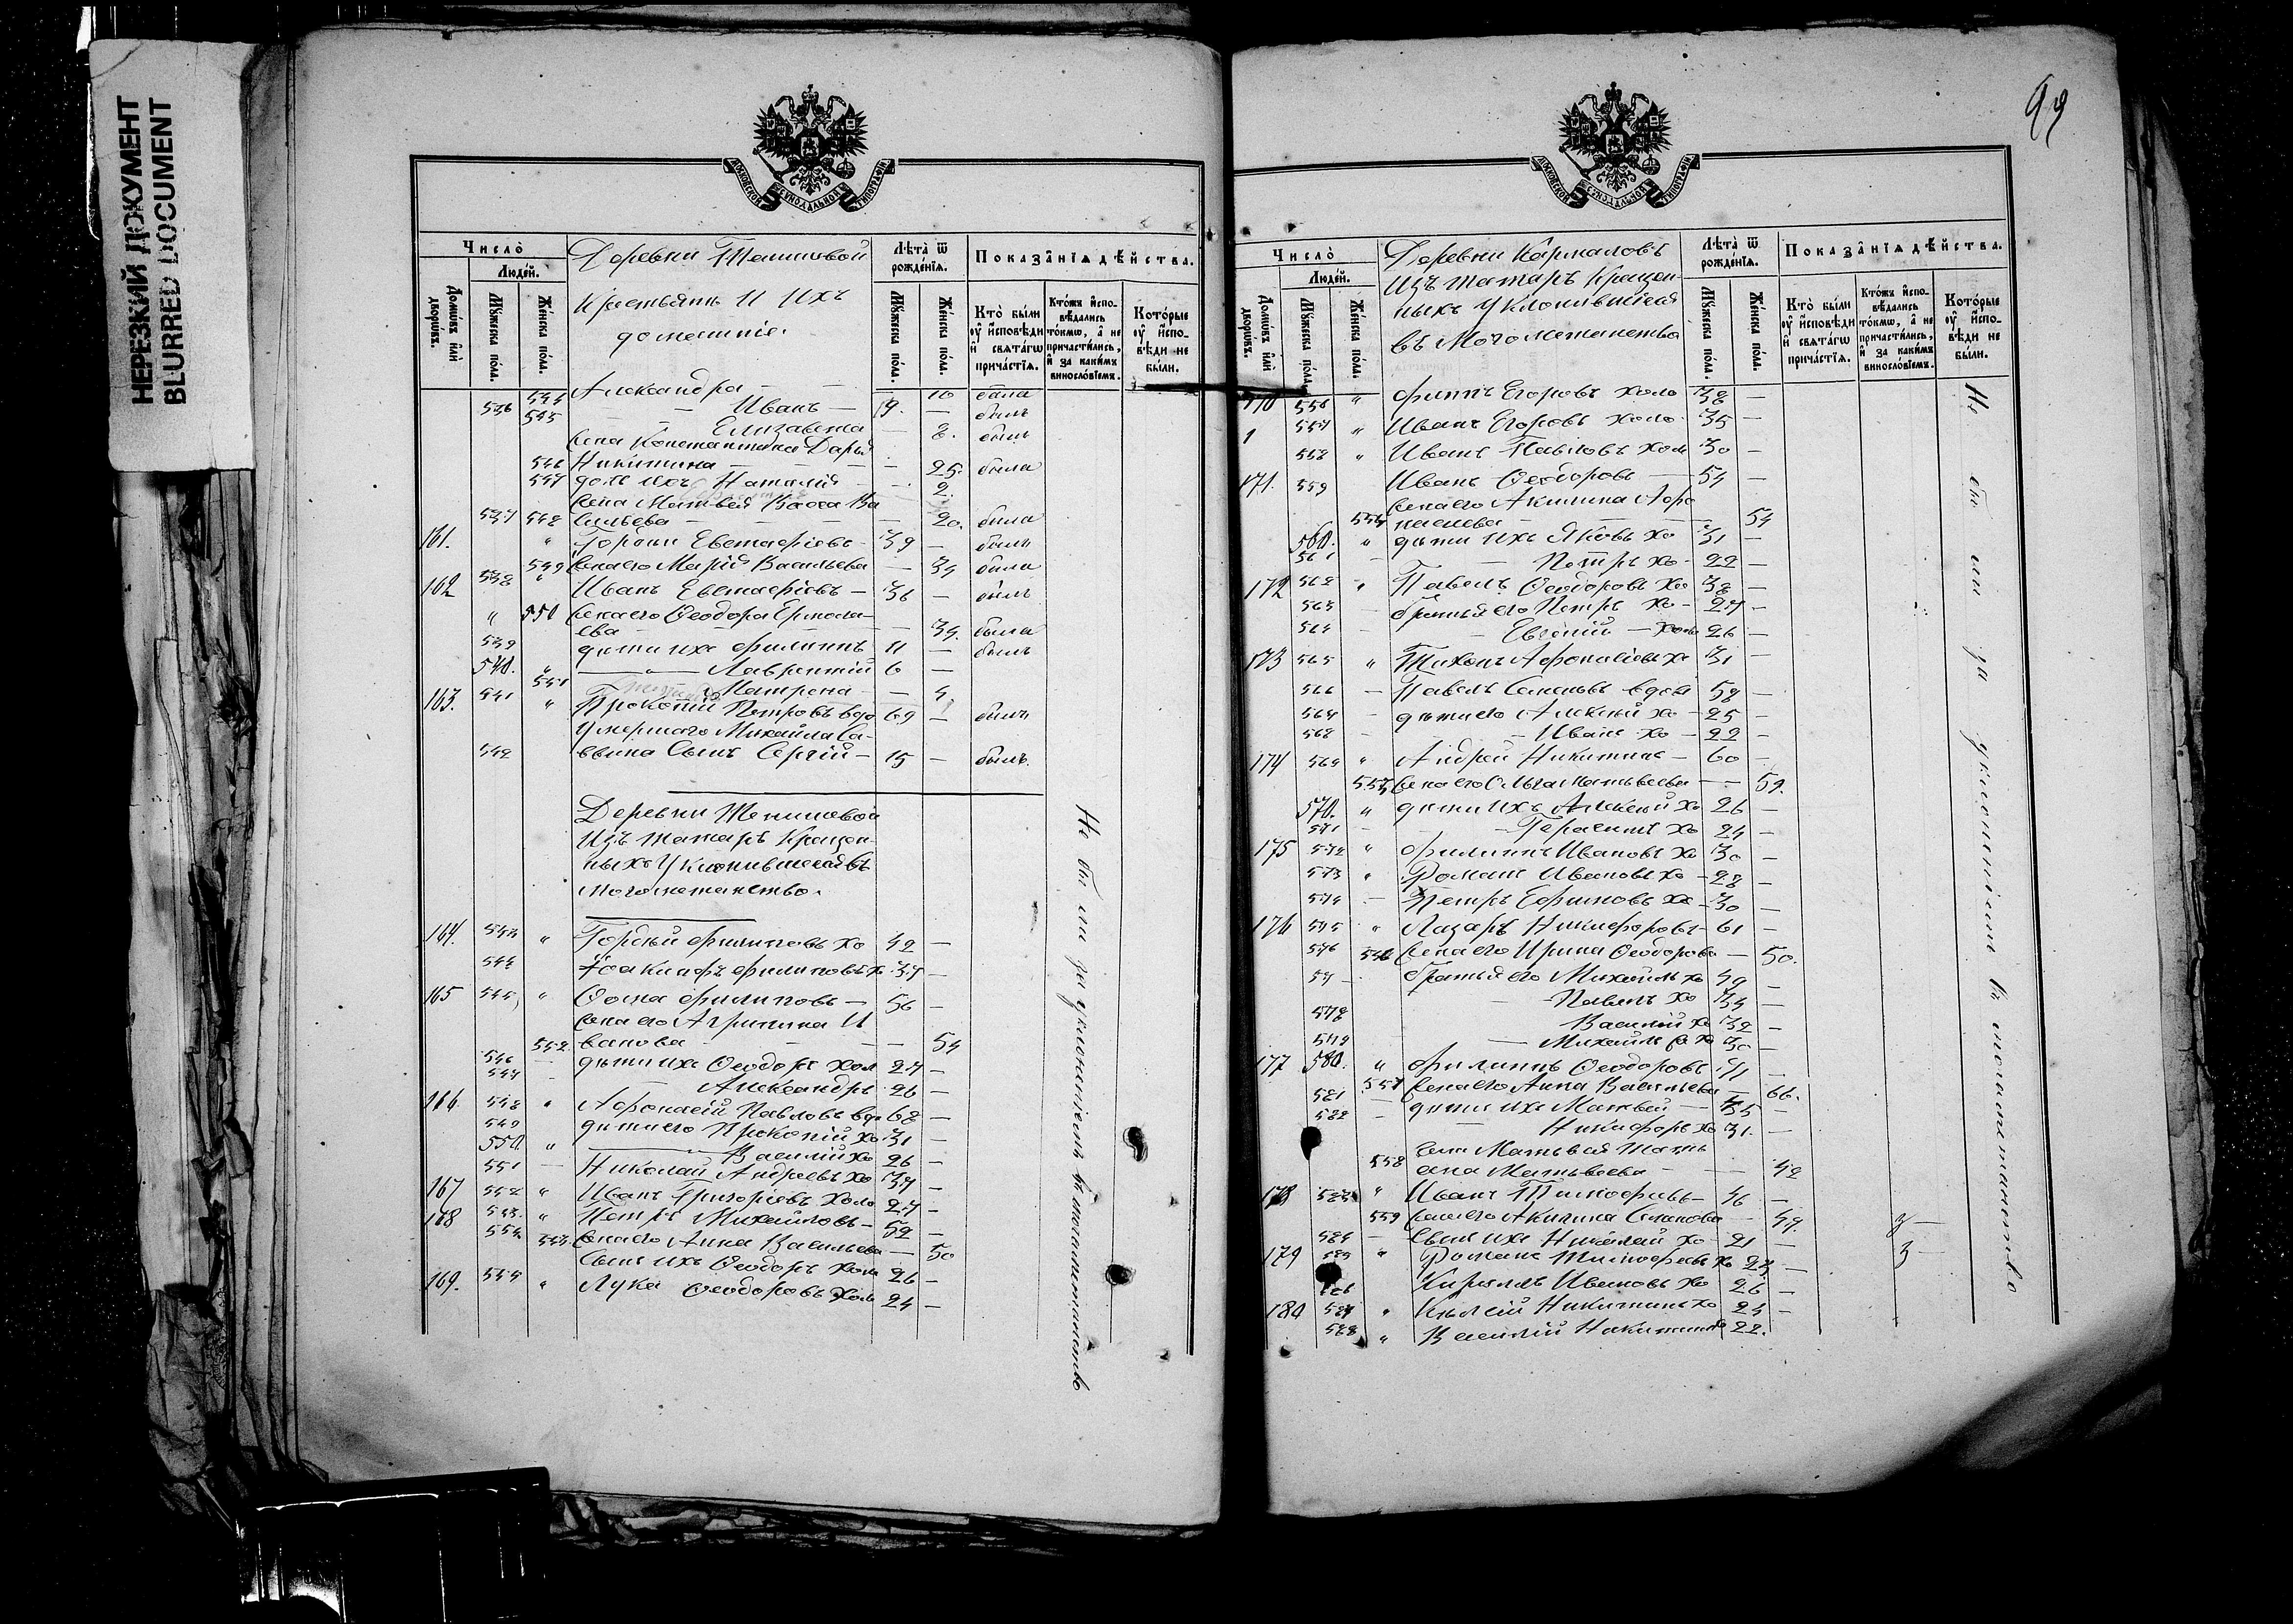 НЕРЕЗКИЙ ДОКУМЕНТ
BLURRED DOCUMENT
МОСКОВСКОЙ СѴНОДАЛЬНОЙ ТИПОГРАФІИ
Число̀
Люде́й.
Домѡ́въ и҆лѝ дворѡ́въ.
Мꙋ́жеска по́ла.
Же́нска по́ла.
Деревни
Крестьяне и ихъ
домашніе.
Лѣ́та ѿ рожде́нїѧ.
Мꙋ́жеска по́ла.
Же́нска по́ла.
Показа̑нїѧ дѣ́йства.
Кто̀ бы́ли оу҆ и҆сповѣ́ди и҆ свѧта́гѡ причас́тїѧ.
Кто́жъ и҆сповѣ́дались то́кмѡ, а҆ не причасти́лись, и҆ за каки́мъ винослові́емъ.
Кото́рые оу҆ и҆сповѣ́ди не бы́ли.
544 Александра — 10 была
536 Иванъ — 19. — былъ
545 Елизавета — 8.
Жена Константина Дарья
546 Никитина — 25. была
547 дочь ихъ Наталія — 2.
Жена Матвея Васса Ва
537 548 сильева — 20. была
161. " Гордей Евстафіевъ 39 — былъ
549 Жена его Марія Васильева — 34 была
162 538 " Иванъ Евстафіевъ — 36 — былъ
" 550 Жена его Ѳеодора Ермола
ева — 34. была
539 дѣти ихъ Филиппъ 11 — былъ
540. " Лаврентій 6 —
551 Матрена — 4.
163. 541 " Прокопій Петровъ вдо 69 — былъ
Умершаго Михаила Са-
542 ввина Сынъ Сергій — 15 — былъ.
Деревни
Изъ татаръ Крещен-
ныхъ Уклонившіеся въ
могометанство.
164. 543 " Гордей Филиповъ хо 42 —
544 Іоакимъ Филиповъ х 37 —
165 545 " Ѳома Филиповъ — 56 —
Жена его Агрипина И
552. ванова — 54
546 — дѣти ихъ Ѳеодоръ Хол 27 —
547 — Александръ 26 —
166. 548 " Афонасій Павловъ вдо 68 —
549 дѣти его Прокопій Хо 31 —
550. " Василій хо 26 —
551 — Николай Андреевъ хо 37 —
167 552 " Иванъ Григоріевъ Холо 27 —
168 553. " Петръ Михайловъ — 52 —
554 553. Жена его Анна Васильева — 50
Сынъ ихъ Ѳеодоръ Холо 26 —
169. 555 " Лука Ѳеодоровъ Холо 24 —
Не были за уклоненіемъ въ могометанство
99
МОСКОВСКОЙ СѴНОДАЛЬНОЙ ТИПОГРАФІИ
Число̀
Люде́й.
Домѡ́въ и҆лѝ дворѡ́въ.
Мꙋ́жеска по́ла.
Же́нска по́ла.
Деревни Кармаловъ
Изъ татаръ Крещен-
ныхъ Уклонившіеся
въ Могометанство
Лѣ́та ѿ рожде́нїѧ.
Мꙋ́жеска по́ла.
Же́нска по́ла.
Показа̑нїѧ дѣ́йства.
Кто̀ бы́ли оу҆ и҆сповѣ́ди и҆ свѧта́гѡ причас́тїѧ.
Кто́жъ и҆сповѣ́дались то́кмѡ, а҆ не причасти́лись, и҆ за каки́мъ винослові́емъ.
Кото́рые оу҆ и҆сповѣ́ди не бы́ли.
170 556 " Филипъ Егоровъ холо 38 —
557 " Иванъ Егоровъ холо 35 —
558 " Иванъ Павловъ холо 30 —
171. 559 Иванъ Ѳеодоровъ — 54 —
Жена его Акилина Афо
554 насіева — 54
560. " дѣти ихъ Яковъ хо 31 —
561 — Петръ хо — 22 —
172 562 " Павелъ Ѳеодоровъ хо 38 —
563 — братья его Петръ хо — 27 —
564 — Евгеній — холо 26 —
173 565 " Тихонъ Афонасіевъ хо 31 —
566 — Павелъ Семеновъ вдов 58 —
567 — дѣти его Алексей хо — 25 —
568 — Иванъ хо — 22 —
174 569 " Андрей Никитинъ — 60 —
555 Жена его Ольга Матвеева — 59.
570. " дѣти ихъ Алексей хо 26 —
571 — Герасимъ хо 24 —
175 572 " Филиппъ Ивановъ хо 30 —
573 " Романъ Ивановъ хо — 28 —
574 — Петръ Ефимовъ хо — 30 —
176 575 " Лазарь Никифоровъ — 61 —
576 556 Жена его Ирина Ѳеодорова — 50.
577 — братья его Михаилъ хо 49 —
Павелъ хо 34 —
578 Василій хо 32 —
579 — Михаилъ хо 30 —
177 580. " Филиппъ Ѳеодоровъ 71 —
557 Жена его Анна Васильева — 66.
581 — дѣти ихъ Матвей — 35 —
582 — Никифоръ хо 31. —
Жена Матвея Тать
558 яна Матвеева — 42
178 583 " Иванъ Тимофеевъ — 46 —
559 Жена его Акилина Семенова — 49.
584 — Сынъ ихъ Николай хо — 21 —
179 585 " Романъ Тимофеевъ хо 23 —
586 Кириллъ Ивановъ хо 26 —
180 587 " Никитинъ хо 24 —
588 " Василій Никитинъ хо 22.
Не были за уклоненіемъ въ могометанство